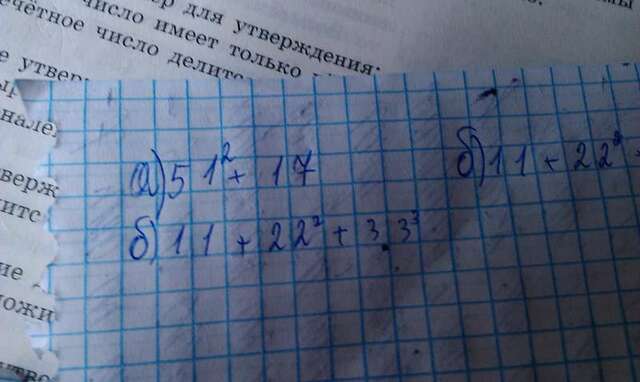 ер для утверждения:
число имеет только
ечётное число делите
е утвер:
нале
верж
ите
ие
ложи
а) 51² + 17
б) 11 + 22² + 33³
б) 11 + 22²